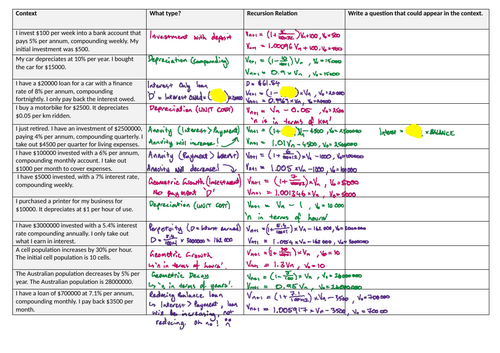 Context
What type?
Recursion Relation
Write a question that could appear in the context.
I invest $100 per week into a bank account that
pays 5% per annum, compounding weekly. My
initial investment was $500.
Investment with deposit
Vn+1 = 1.00096 Vn + 100, V0 = 500
My car depreciates at 10% per year. I bought
the car for $15000.
Depreciation (Compounding)
Vn+1 = 0.9 × Vn, V0 = 15000
I have a $20000 loan for a car with a finance
rate of 8% per annum, compounding
fortnightly. I only pay back the interest owed.
Interest Only loan
D = $61.54
I buy a motorbike for $2500. It depreciates
$0.05 per km ridden.
Depreciation (UNIT COST)
Vn+1 = Vn - 0.05, V0 = 2500
'n is in terms of km'
I just retired. I have an investment of $2500000,
paying 4% per annum, compounding quarterly. I
take out $4500 per quarter for living expenses.
Annuity (Interest > Payment)
Annuity will increase!
Vn+1 = 1.01 Vn - 4500, V0 = 2500000
Interest = × BALANCE
I have $100000 invested with a 6% per annum
compounding monthly account. I take out
$1000 per month to cover expenses.
Annuity (Payment > Interest)
Annuity will decrease!
Vn+1 = (1 + 6/(100×12)) × Vn - 1000, V0 = 100000
Vn+1 = 1.005 × Vn - 1000, V0 = 100000
I have $5000 invested, with a 7% interest rate,
compounding weekly.
Geometric Growth (Investment)
No payment 'D'
Vn+1 = 1.001346 × Vn, V0 = 5000
I purchased a printer for my business for
$10000. It depreciates at $1 per hour of use.
Depreciation (UNIT COST)
Vn+1 = Vn - 1, V0 = 10000
'n in terms of hours'
I have $3000000 invested with a 5.4% interest
rate compounding annually. I only take out
what I earn in interest.
Perpetuity (D = interest earned)
D = 5.4/100 × 3000000 = 162000
A cell population increases by 30% per hour.
The initial cell population is 10 cells.
Geometric Growth
'n in terms of hours'
Vn+1 = (1 + 30/100) × Vn, V0 = 10
Vn+1 = 1.3 Vn, V0 = 10
The Australian population decreases by 5% per
year. The Australian population is 28000000.
Geometric Decay
'n in terms of years'
I have a loan of $700000 at 7.1% per annum,
compounding monthly. I pay back $3500 per
month.
Reducing Balance loan
Interest > Payment, loan
will be increasing, not
reducing. oh no!
Vn+1 = (1 + 7.1/(100×12)) × Vn - 3500, V0 = 700000
Vn+1 = 1.005917 × Vn - 3500, V0 = 700000